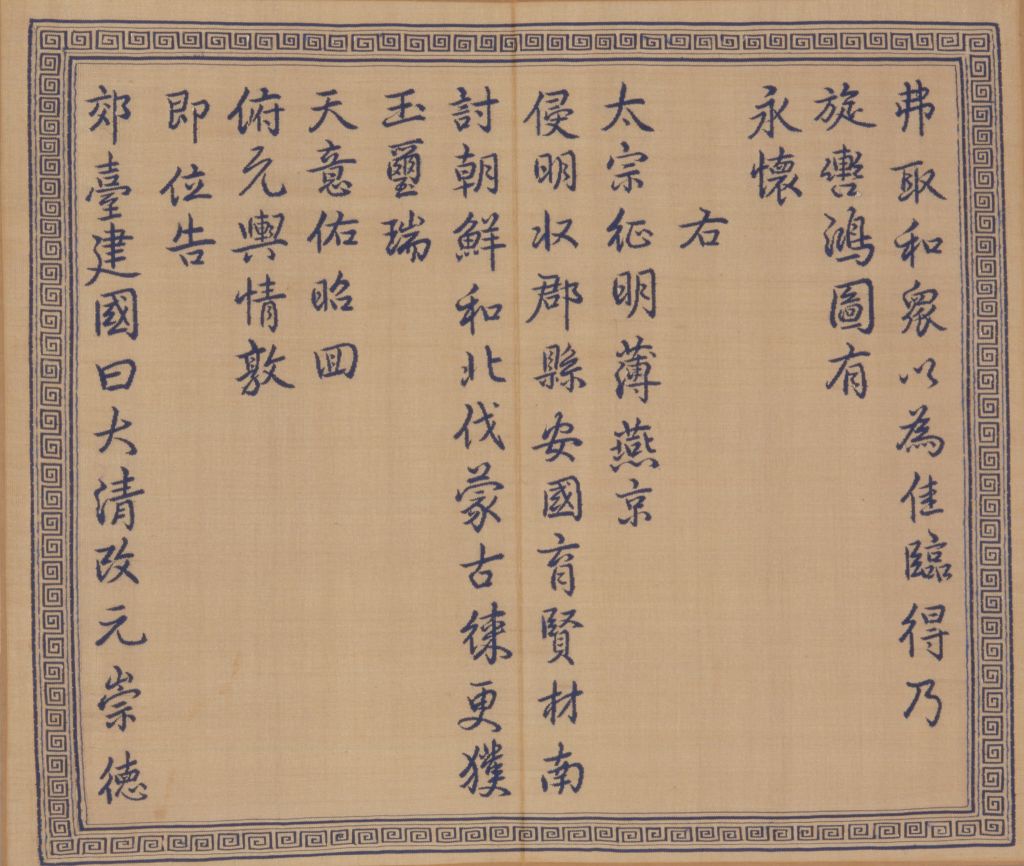 弗取和眾以為佳臨得乃
旋轡鴻圖有
永懷
右
太宗征明薄燕京
侵明収郡縣安國育賢材南
討朝鮮和北伐蒙古徠更獲
玉璽瑞
天意佑昭囬
俯允輿情敦
即位告
郊臺建國曰大清改元崇德